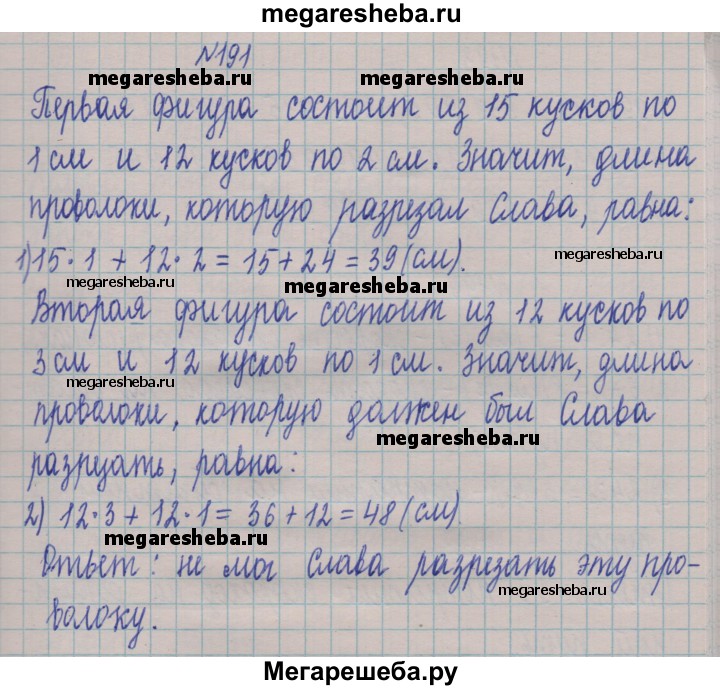 megaresheba.ru
№191
megaresheba.ru megaresheba.ru
Первая фигура состоит из 15 кусков по
1 см и 12 кусков по 2 см. Значит, длина
megaresheba.ru
проволоки, которую разрезал Слава, равна:
1) 15·1 + 12·2 = 15 + 24 = 39 (см).
megaresheba.ru
megaresheba.ru megaresheba.ru
Вторая фигура состоит из 12 кусков по
3 см и 12 кусков по 1 см. Значит, длина
megaresheba.ru
проволоки, которую должен был Слава
megaresheba.ru
разрузать, равна:
2) 12·3 + 12·1 = 36 + 12 = 48 (см).
megaresheba.ru
Ответ: не мог Слава разрезать эту про-
megaresheba.ru
волоку.
Мегарешеба.ру